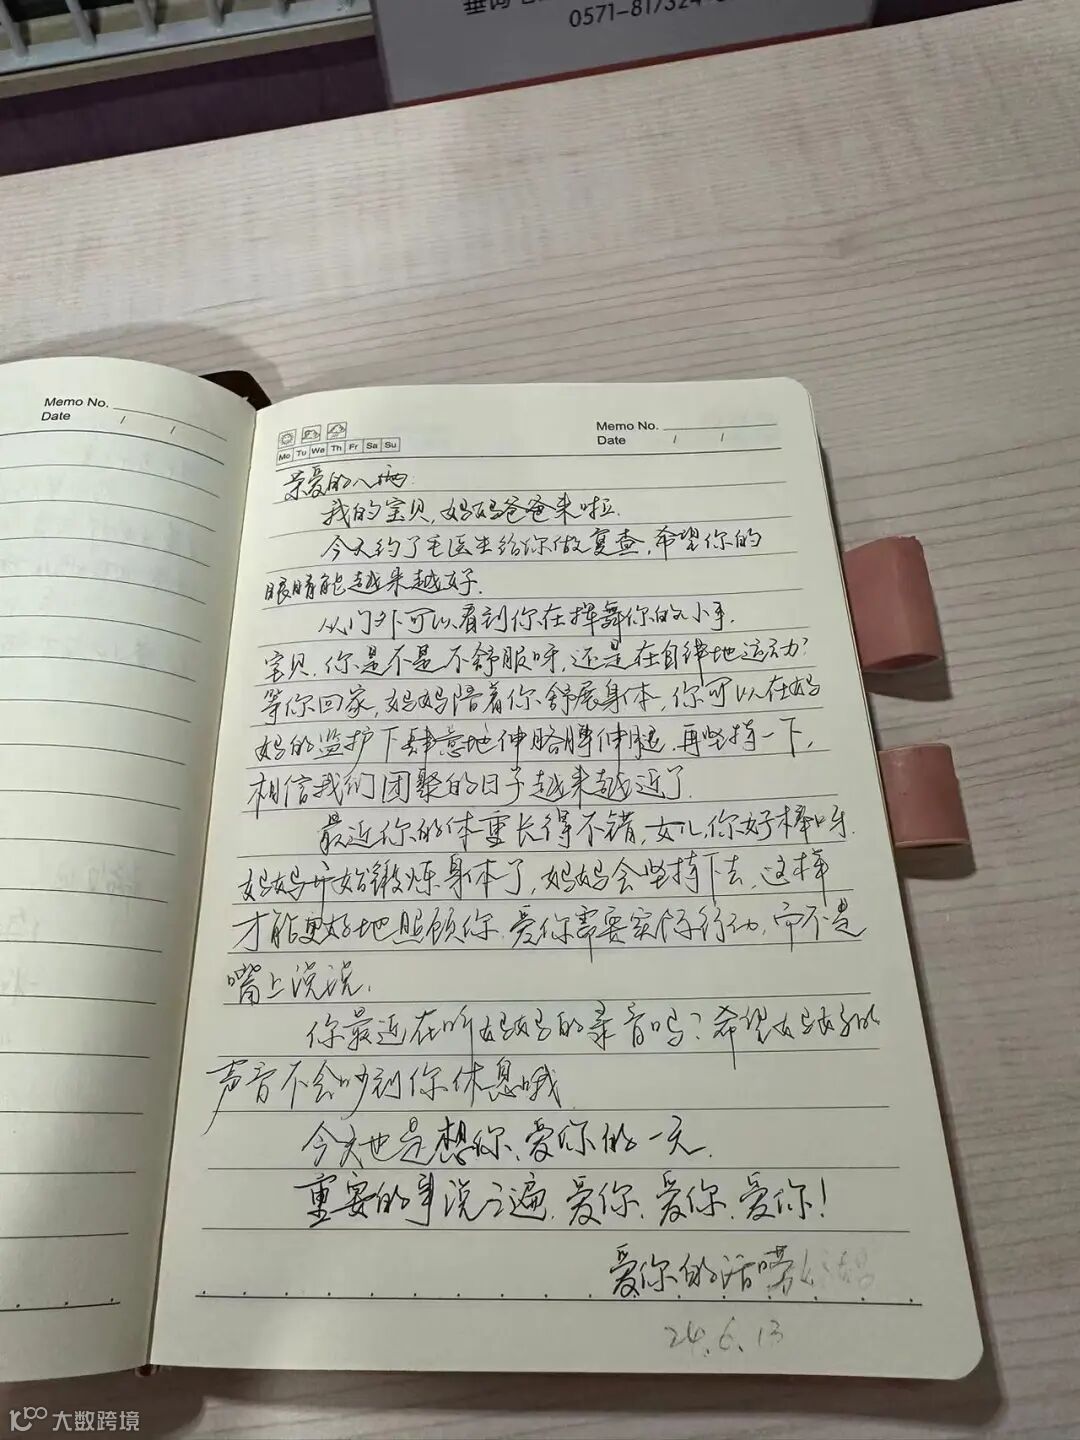 0571-81732
Memo No.
Date / /
Mo Tu We Th Fr Sa Su
Memo No.
Date / /
亲爱的八
我的宝贝,妈妈爸爸来啦.
今天约了毛医生给你做复查,希望你的
眼睛能越来越好.
从门外可以看到你在挥舞你的小手.
宝贝,你是不是不舒服呀,还是在自律地运动?
等你回家,妈妈陪着你舒展身体,你可以在妈
妈的监护下肆意地伸胳膊伸腿,再坚持一下,
相信我们团聚的日子越来越近了.
最近你的体重长得不错,女儿,你好棒呀.
妈妈开始锻炼身体了,妈妈会坚持下去,这样
才能更好地照顾你.爱你需要实际行动,而不是
嘴上说说.
你最近在听妈妈的录音吗?希望妈妈的
声音不会吵到你休息哦.
今天也是想你、爱你的一天.
重要的事说三遍.爱你、爱你、爱你!
爱你的话唠
24.6.13
大数跨境